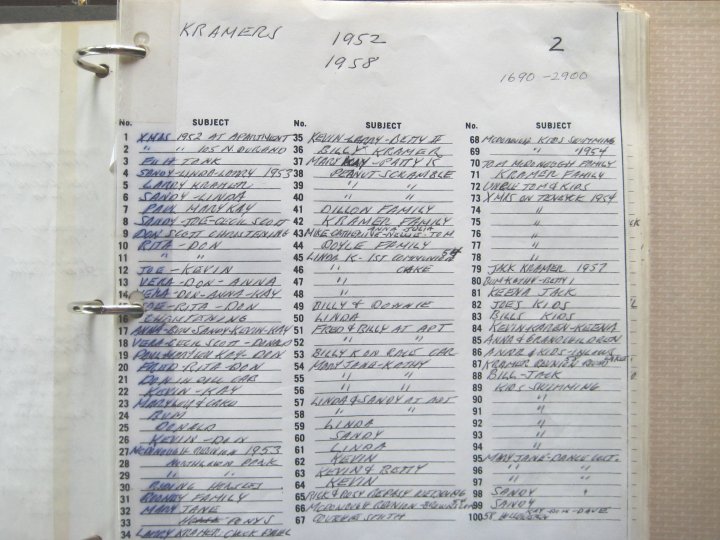 KRAMERS 1952 2
1958
1690-2900
No. SUBJECT
1 XMAS 1952 AT APARTMENT
2 " " 105 N. DURAND
3 FISH TANK
4 SANDY-LINDA-LARRY 1953
5 LARRY KRAMER
6 SANDY-LINDA
7 PAUL MARYKAY
8 SANDY-JOE-CECIL SCOTT
9 DON SCOTT CHRISTENING
10 RITA-DON
11 " "
12 JOE-KEVIN
13 VERA-DON-ANNA
14 VERA-DON-ANNA-KAY
15 JOE-RITA-DON
16 CHRISTENING
17 ANNA-DON-SANDY-KEVIN-KAY
18 VERA-CECIL SCOTT-DONALD
19 KAY-DON
20 FRED RITA-DON
21 DON IN CAR
22 KEVIN-KAY
23 MARYLOU &
24 BUM
25 DONALD
26 KEVIN-DON
27 MCDONOUGH REUNION 1953
28 PARK
29 " "
30 RIDING HORSES
31 ROONEY FAMILY
32 MARY JANE
33 PONYS
34 LARRY KRAMER CHUCK
No. SUBJECT
35 KEVIN-LARRY-BETTY II
36 BILLY KRAMER
37 MARY KAY-PATTY K
38 PEANUT SCRAMBLE
39 " "
40 " "
41 DILLON FAMILY
42 KRAMER FAMILY
ANNA JULIA
43 MIKE CATHERINE-NEWIE-TOM
44 DOYLE FAMILY
45 LINDA K-1ST COMMUNION 54
46 " CAKE
47 "
48 "
49 BILLY & DONNIE
50 LINDA
51 FRED & BILLY AT APT
52 " " "
53 BILLY K ON RACE CAR
54 MARY JANE-KATHY
55 " "
56 " "
57 LINDA & SANDY AT APT
58 " " "
59 LINDA
60 SANDY
61 LINDA
62 KEVIN
63 KEVIN & BETTY
64 KEVIN
65 DICK & ROSY WEDDING
66 MCDONOUGH REUNION
67 SMITH
No. SUBJECT
68 MCDONOUGH KIDS SWIMMING
69 " 1954
70 TOM MCDONOUGH FAMILY
71 KRAMER FAMILY
72 UNCLE TOM & KIDS
73 XMAS ON TENEYCK 1954
74 "
75 "
76 "
77 "
78 "
79 JACK KRAMER 1957
80
81 KEENA JACK
82 JOE'S KIDS
83 BILLS KIDS
84 KEVIN KAREN-KEENA
85 ANNA & GRANDCHILDREN
86 ANNA & KIDS-
87 KRAMER REUNION
88 BILL-JACK
89 KIDS SWIMMING
90 "
91 "
92 "
93 "
94 "
95 MARY JANE-DANCE
96 " "
97 " "
98 SANDY
99 SANDY
100 58